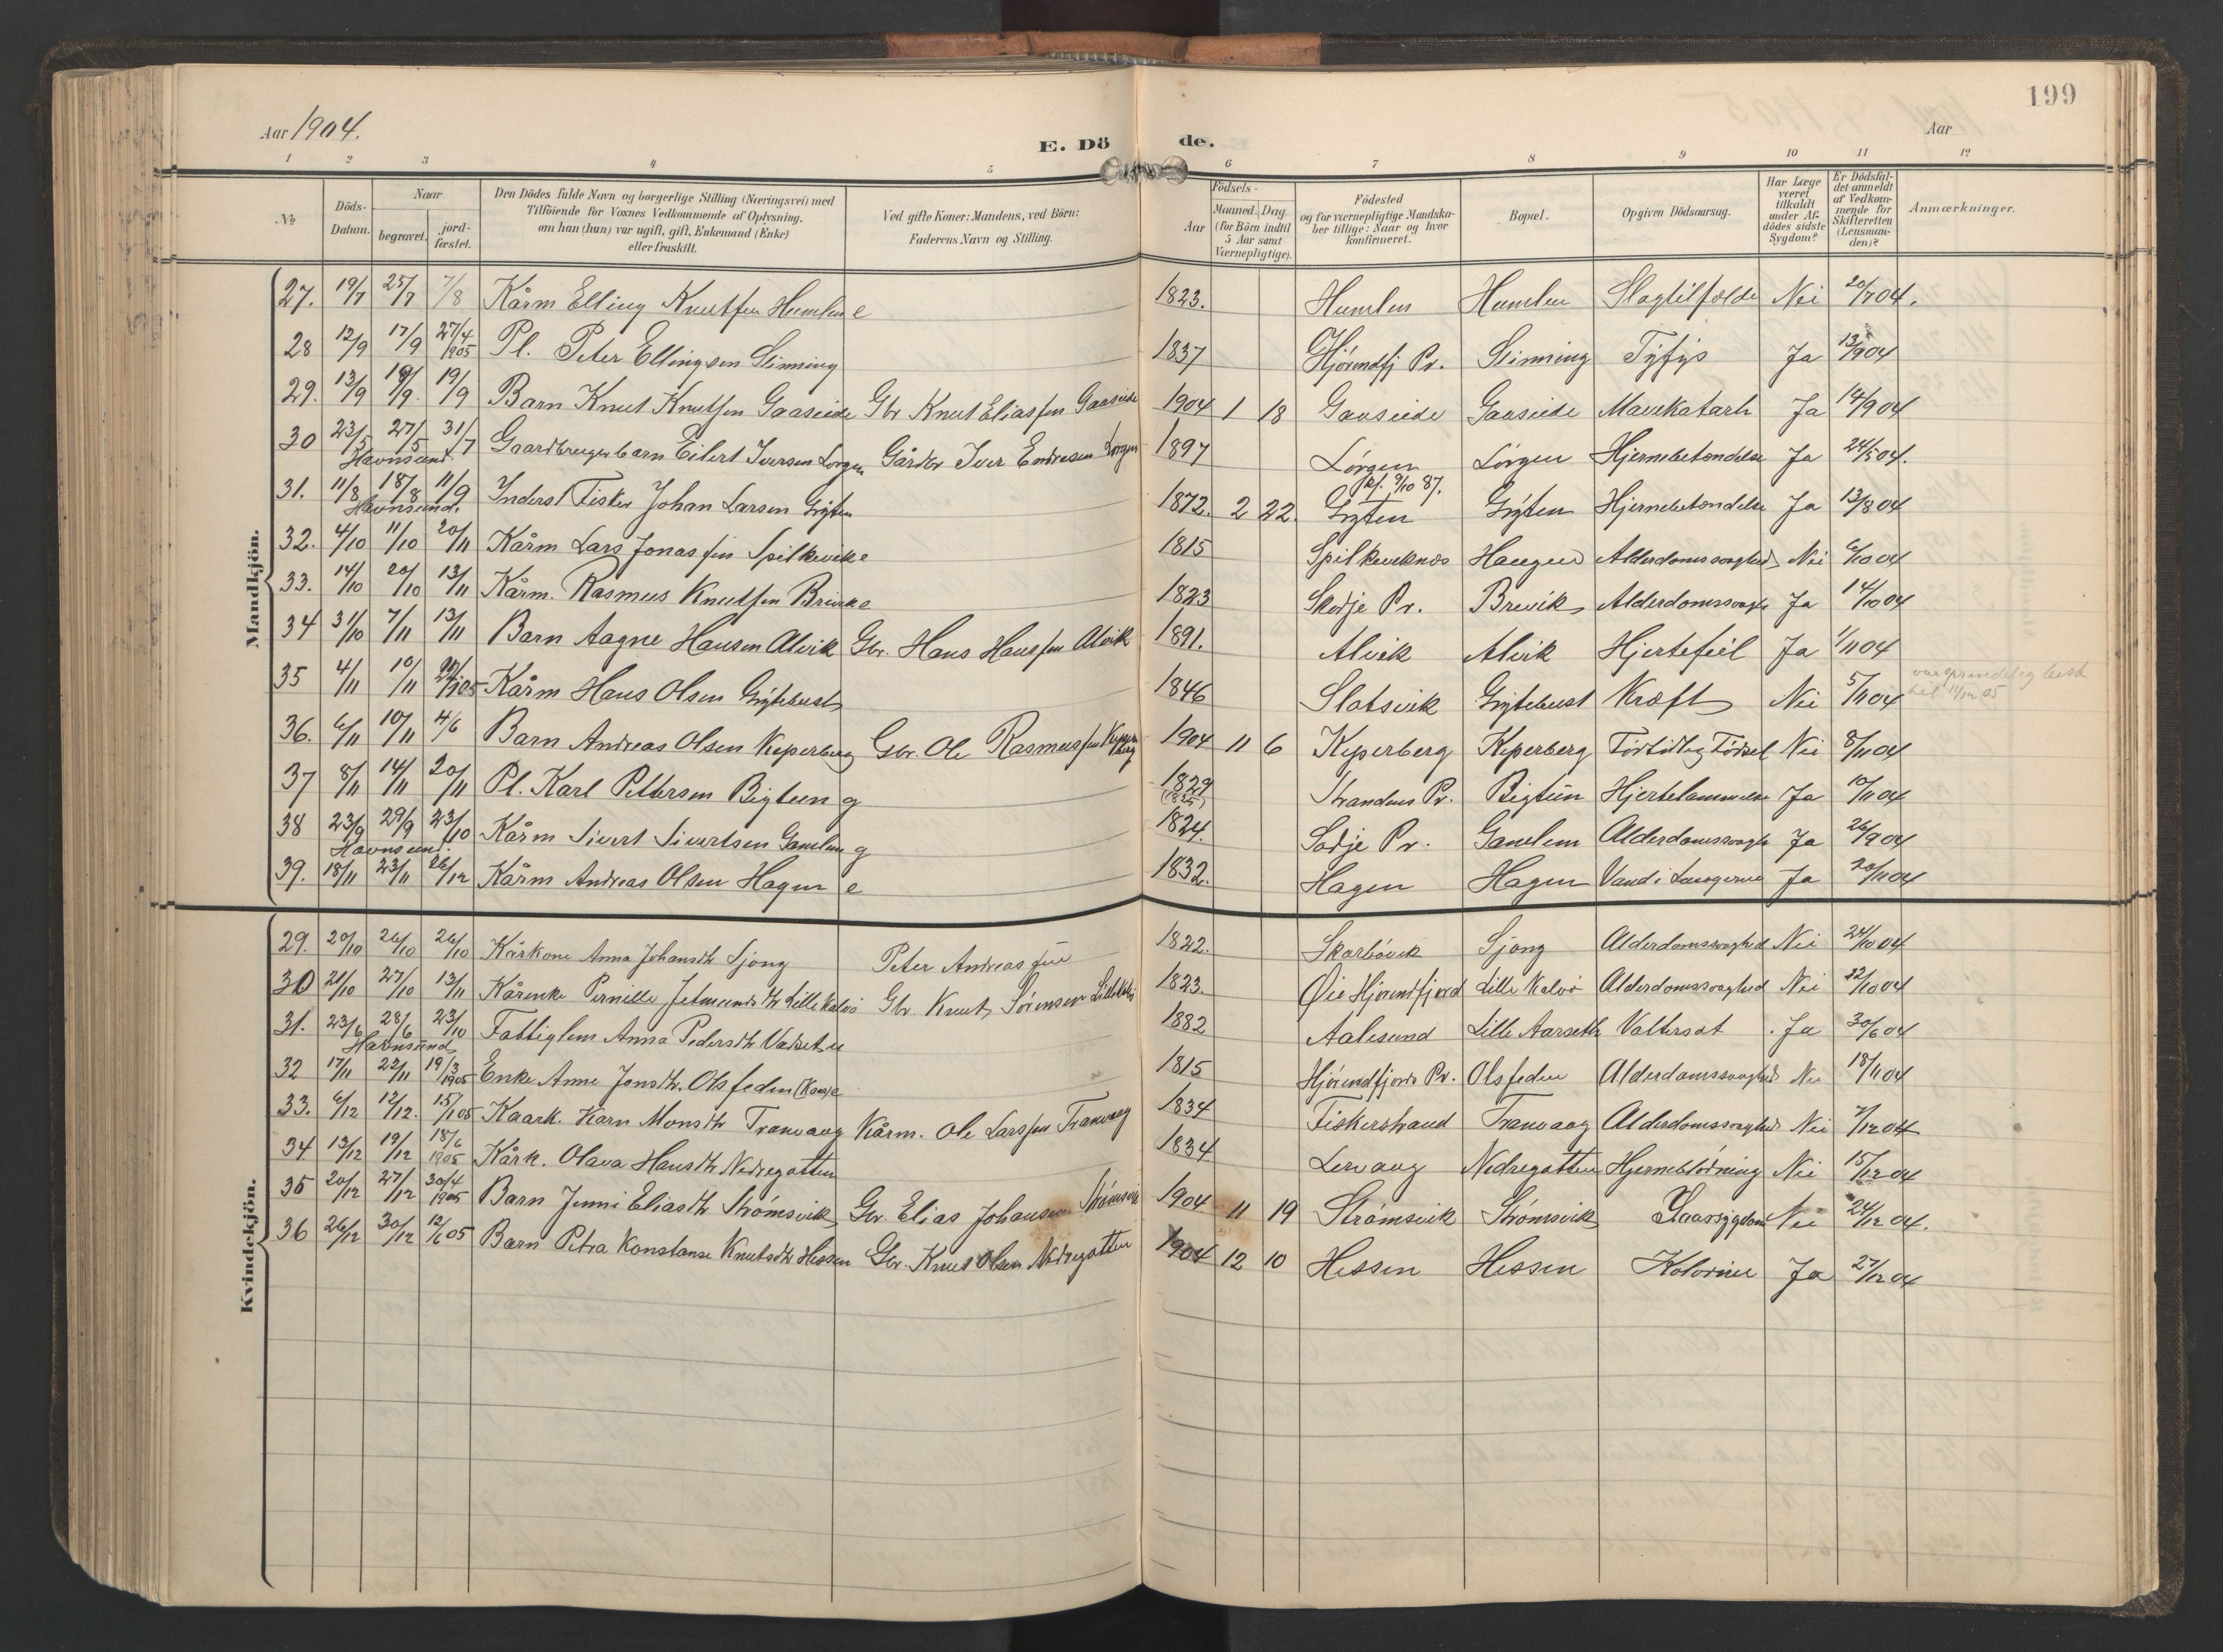 199
Aar 1904.
Aar
E. Dö de.
1 2 3 4 5 6 7 8 9 10 11 12
No
Döds-Datum.
Naar
begravet.
jord-fæstet.
Den Dödes fulde Navn og borgerlige Stilling (Næringsvei) med
Tilföiende for Voxnes Vedkommende af Oplysning,
om han (hun) var ugift, gift, Enkemand (Enke)
eller fraskilt.
Ved gifte Koner: Mandens, ved Börn:
Faderens Navn og Stilling.
Födsels-
Aar
Maaned. Dag.
(for Börn indtil
5 Aar samt
Værnepligtige).
Födested
og for værnepligtige Mandska-
ber tillige: Naar og hvor
konfirmeret.
Bopæl.
Opgiven Dödsaarsag.
Har Læge
været
tilkaldt
under Af-
dödes sidste
Sygdom?
Er Dödsfal-
det anmeldt
af Vedkom-
mende for
Skifteretten
(Lensman-
den)?
Anmærkninger.
Mandkjön.
27. 19/7 25/7 7/8 Kårm Elling Knutsen Humlen e 1823. Humlen Humlen Slagtilfælde Nei 20/7 04.
28 12/9 17/9 27/4 1905 Pl. Peter Ellingsen Slinning 1837 Hjörundfj Pr. Slinning Tyfys Ja 13/9 04
29. 13/9 19/9 19/9 Barn Knut Knutsen Gaaseide Gbr Knut Eliassen Gaaseide 1904 1 18 Gaaseide Gaaseide Mavekatarh Ja 14/9 04
30 23/5 27/5 31/7 Gaardbrugerbarn Eilert Iversen Lorgen Gårdbr Iver Endresen Lorgen 1897 Lørgen Lørgen Hjernebetændelse Ja 24/5 04.
Havnsund
31. 11/8 18/8 11/9 Inderst Fisker Johan Larsen Grýten 1872. 2 22. Kf. 9/10 87. Grýten Grýten Hjernebetændelse Ja 13/8 04
Havnsund.
32. 4/10 11/10 20/11 Kårm Lars Jonassen Spilkevik e 1815 Spilkeviknes Haugen Alderdomssvaghed Nei 6/10 04
33. 14/10 20/10 13/11 Kårm. Rasmus Knutsen Brevik e 1823 Skodje Pr. Brevik Alderdomssvagh Ja 14/10 04
34 31/10 7/11 13/11 Barn Aagne Hansen Alvik Gbr. Hans Hansen Alvik 1891. Alvik Alvik Hjertefeil Ja 1/11 04
35 4/11 10/11 Kårm Hans Olsen Grýtebust 1846 Slatsvik Grýtebust Kræft Nei 5/11 04
36. 6/11 10/11 4/6 Barn Andreas Olsen Kiperberg Gbr. Ole Rasmussen Kipperberg 1904 11 6 Kiperberg Kiperberg Förtidlig Födsel Nei 8/11 04
37 8/11 14/11 20/11 Pl. Karl Pettersen Bigtun g 1829 (1825) Strandens Pr. Bigtün Hjertelammelse Ja 10/11 04
38 23/9 29/9 23/10 Kårm Sivert Sivertsen Gamlem g 1824. Sødje Pr. Gamlem Alderdomssvagh Ja 26/9 04
Havnsund.
39. 18/11 23/11 26/12 Kårm Andreas Olsen Hagen e 1832. Hagen Hagen Vand i Lungerne Ja 20/11 04
Kvindekjön.
29. 20/10 26/10 26/10 Kårkone Anna Johansdtr Sjong Peter Andreassen 1822. Skarbövik Sjong Alderdomssvaghed Nei 24/10 04
30 21/10 27/10 13/11 Kårenke Pernille Jetmundsdtr Lille Kalvö Gbr Knut Sørensen Lillekalvö 1823. Øie Hjörundfjord Lille Kalvö Alderdomssvaghed Nei 22/10 04
31. 23/6 28/6 23/10 Fattiglem Anna Pedersdtr Vadset u 1882 Aalesund Lille Aarseth Vattersot Ja 30/6 04
Havnsund
32 17/11 22/11 19/3 1905 Enke Anne Jonsdtr. Olsfeden 1815 Hjörundfjords Pr. Olsfeden Alderdomssvaghed Nei 18/11 04
33. 6/12 12/12. 15/1 05 Kaark. Karn Monsdtr Tranvaag Kårm. Ole Larssen Tranvaag 1834 Fiskerstrand Tranvaag Alderdomssvaghed Nei 7/12 04
34. 13/12 19/12 18/6 1905 Kårk. Olava Hansdtr Nedregotten 1834 Lervaag Nedregotten Hjerneblödning Nei 15/12 04
35 20/12 27/12 30/4 1905 Barn Jenni Eliasdtr Strömsvik Gbr. Elias Johansen Strömsvik 1904 11 19 Strömsvik Strömsvik Nei 24/12 04.
36 26/12 30/12 12/6 05 Barn Petra Konstanse Knutsdtr Hessen Gbr. Knut Olsen Nedregotten 1904 12 10 Hessen Hessen Kolorine Ja 27/12 04